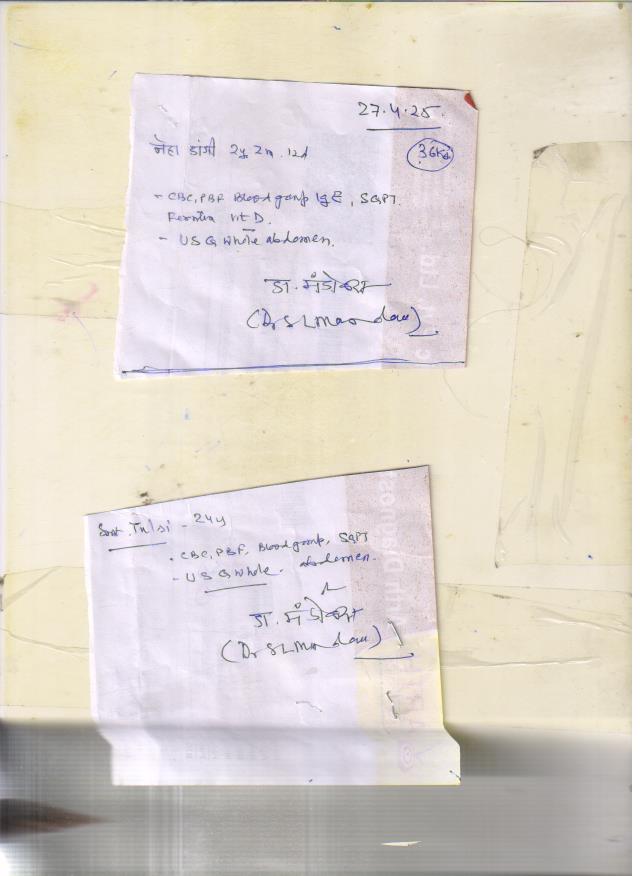 27.4.25
नेहा डांगी 2y 2m 12d
36KG
- CBC, PBF Blood group IgE, SGPT
Ferritin Vit D.
- USG whole abdomen.
डा. मंडोवरा
(Dr S L Mandowara)
Smt. Tulsi - 24y
. CBC, PBF, Blood group, SGPT
- USG whole. abdomen.
डा. मंडोवरा
(Dr S L Mandowara)
nth Diagnos